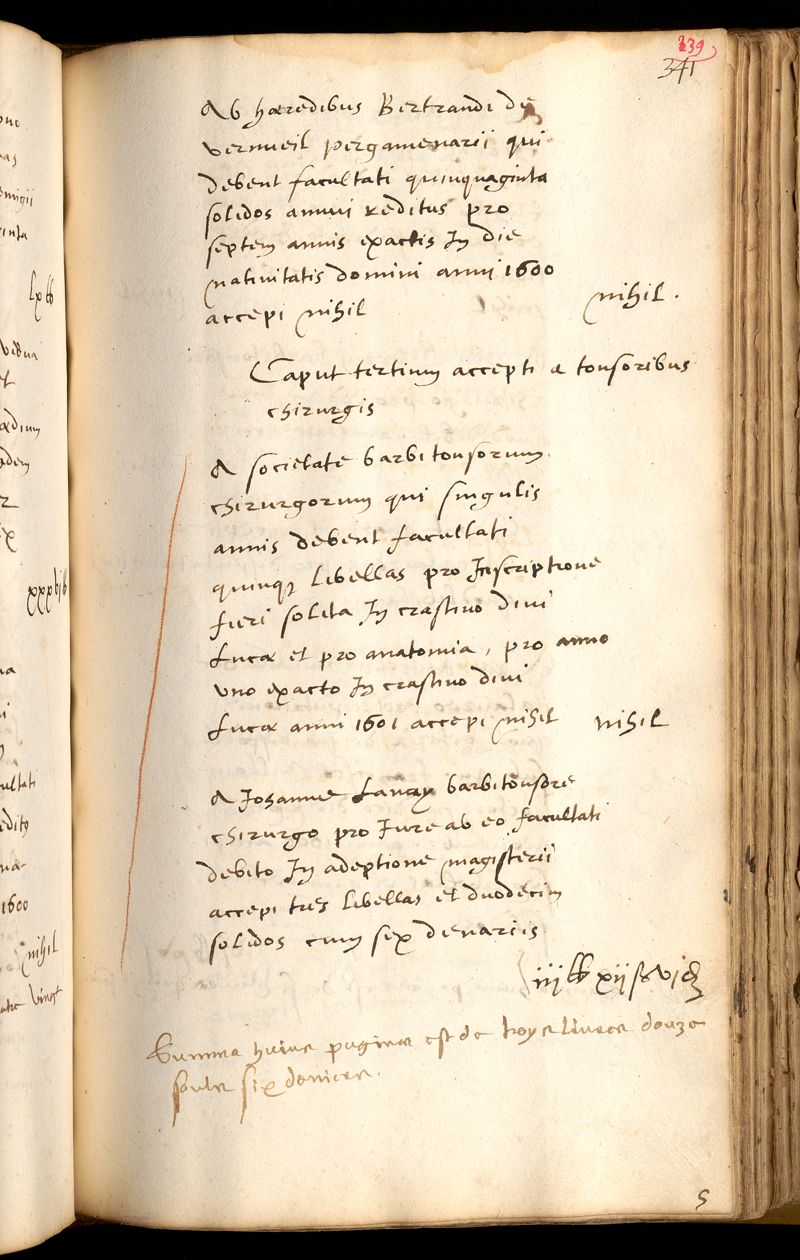 239
341
Ab hæredibus Bertrandi de
verneuil pergamenarii qui
debent facultati quinquaginta
solidos annui reditus pro
septem annis exactis In die
nativitatis domini anni 1600
accepi nihil nihil .
Caput tertium accepti a tonsoribus
chirurgis
A societate barbitonsorum
chirurgorum qui singulis
annis debent facultati
quinq; libellas pro Inscriptione
fieri solita In crastino divi
Lucæ et pro anatomia , pro anno
uno exacto In crastino divi
Lucæ anni 1601 accepi nihil nihil
A Johanne Lanay barbitonsore
chirurgo pro Iure ab eo facultati
debito In adeptione magisterii
accepi tres libellas et duodecim
solidos cum sex denariis
iij ll xij ß vj d
Summa huius paginæ est de troys livres douze
soulz six deniers .
S